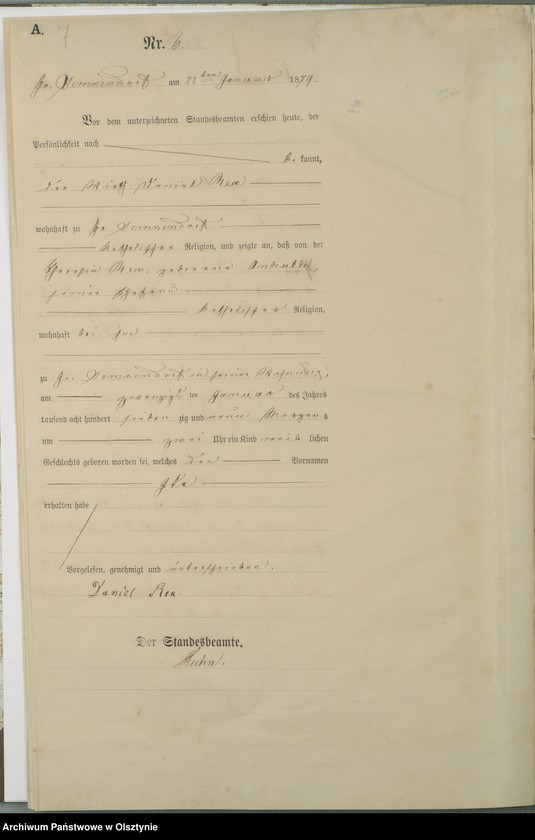 A. 7
Nr. 6.
Gr. am 22 ten Januar 1879.
Vor dem unterzeichneten Standesbeamten erschien heute, der
Persönlichkeit nach
be kannt,
der Wirth Daniel Rex
wohnhaft zu Gr.
katholischer Religion, und zeigte an, daß von der
Rex geborene
seiner Ehefrau
katholischer Religion,
wohnhaft bei ihm
zu Gr. in seiner Wohnung,
am zwanzigsten Januar des Jahres
tausend acht hundert sieben zig und neun Morgens
um zwei Uhr ein Kind weib lichen
Geschlechts geboren worden sei, welches den Vornamen
Ida
erhalten habe
Vorgelesen, genehmigt und unterschrieben.
Daniel Rex.
Der Standesbeamte.
Kuhn.
Archiwum Państwowe w Olsztynie